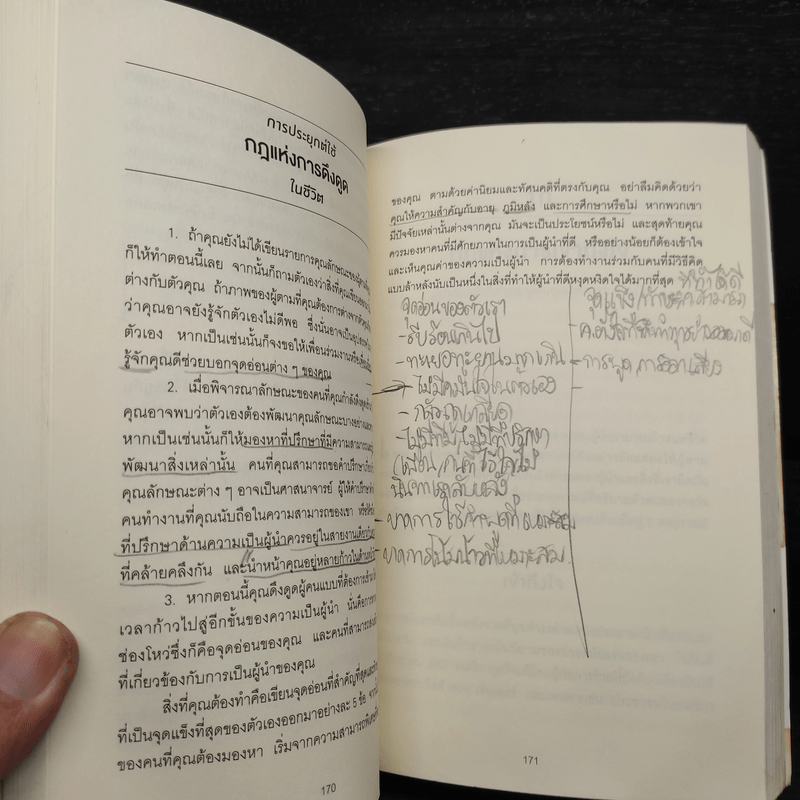 การประยุกต์ใช้
กฎแห่งการดึงดูด
ในชีวิต
1. ถ้าคุณยังไม่ได้เขียนรายการคุณลักษณะของผู้ตาม
ก็ให้ทำตอนนี้เลย จากนั้นก็ถามตัวเองว่าสิ่งที่คุณเขียน
ต่างกับตัวคุณ ถ้าภาพของผู้ตามที่คุณต้องการต่างจาก
ว่าคุณอาจยังรู้จักตัวเองไม่ดีพอ ซึ่งนั่นอาจเป็น
ตัวเอง หากเป็นเช่นนั้นก็จงขอให้เพื่อนร่วมงานหรือ
รู้จักคุณดีช่วยบอกจุดอ่อนต่าง ๆ ของคุณ
2. เมื่อพิจารณาลักษณะของคนที่คุณกำลังดึงดูด
คุณอาจพบว่าตัวเองต้องพัฒนาคุณลักษณะบางอย่าง
หากเป็นเช่นนั้นก็ให้มองหาที่ปรึกษาที่มีความสามารถ
พัฒนาสิ่งเหล่านั้น คนที่คุณสามารถขอคำปรึกษา
คุณลักษณะต่าง ๆ อาจเป็นศาสนาจารย์ ผู้ให้คำปรึกษา
คนทำงานที่คุณนับถือในความสามารถของเขา หรือ
ที่ปรึกษาด้านความเป็นผู้นำควรอยู่ในสายงานเดียวกัน
ที่คล้ายคลึงกัน และนำหน้าคุณอยู่หลายก้าวใน
3. หากตอนนี้คุณดึงดูดผู้คนแบบที่ต้องการ
เวลาก้าวไปสู่อีกขั้นของความเป็นผู้นำ นั่นคือการ
ช่องโหว่ซึ่งก็คือจุดอ่อนของคุณ และคนที่สามารถ
ที่เกี่ยวข้องกับการเป็นผู้นำของคุณ
สิ่งที่คุณต้องทำคือเขียนจุดอ่อนที่สำคัญที่สุดและ
ที่เป็นจุดแข็งที่สุดของตัวเองออกมาอย่างละ 5 ข้อ
ของคนที่คุณต้องมองหา เริ่มจากความสามารถ
170
ของคุณ ตามด้วยค่านิยมและทัศนคติที่ตรงกับคุณ อย่าลืมคิดด้วยว่า
คุณให้ความสำคัญกับอายุ ภูมิหลัง และการศึกษาหรือไม่ หากพวกเขา
มีปัจจัยเหล่านั้นต่างจากคุณ มันจะเป็นประโยชน์หรือไม่ และสุดท้ายคุณ
ควรมองหาคนที่มีศักยภาพในการเป็นผู้นำที่ดี หรืออย่างน้อยก็ต้องเข้าใจ
และเห็นคุณค่าของความเป็นผู้นำ การต้องทำงานร่วมกับคนที่มีวิธีคิด
แบบล้าหลังนับเป็นหนึ่งในสิ่งที่ทำให้ผู้นำที่ดีหงุดหงิดใจได้มากที่สุด
จุดอ่อนของตัวเรา
- รีบร้อนเกินไป
- ทะเยอทะยานมากเกิน
- ไม่มีความมั่นใจในตัวเอง
- ไม่มีทีม/ไม่มีที่ปรึกษา
นินทาเราลับหลัง
- ขาดการใช้คำพูดที่เหมาะสม
- ขาดการโน้มน้าวที่เหมาะสม
ที่ทำได้ดี
จุดแข็ง
- การพูด การออกเสียง
171